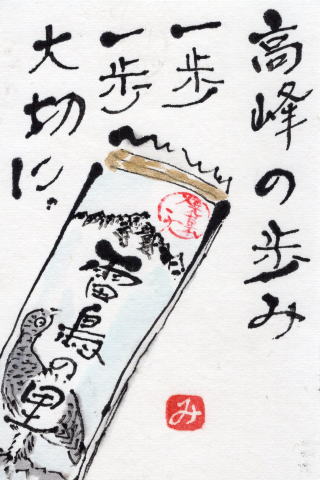 高峰の歩み
一歩
一歩
大切に。
雷鳥の里
み